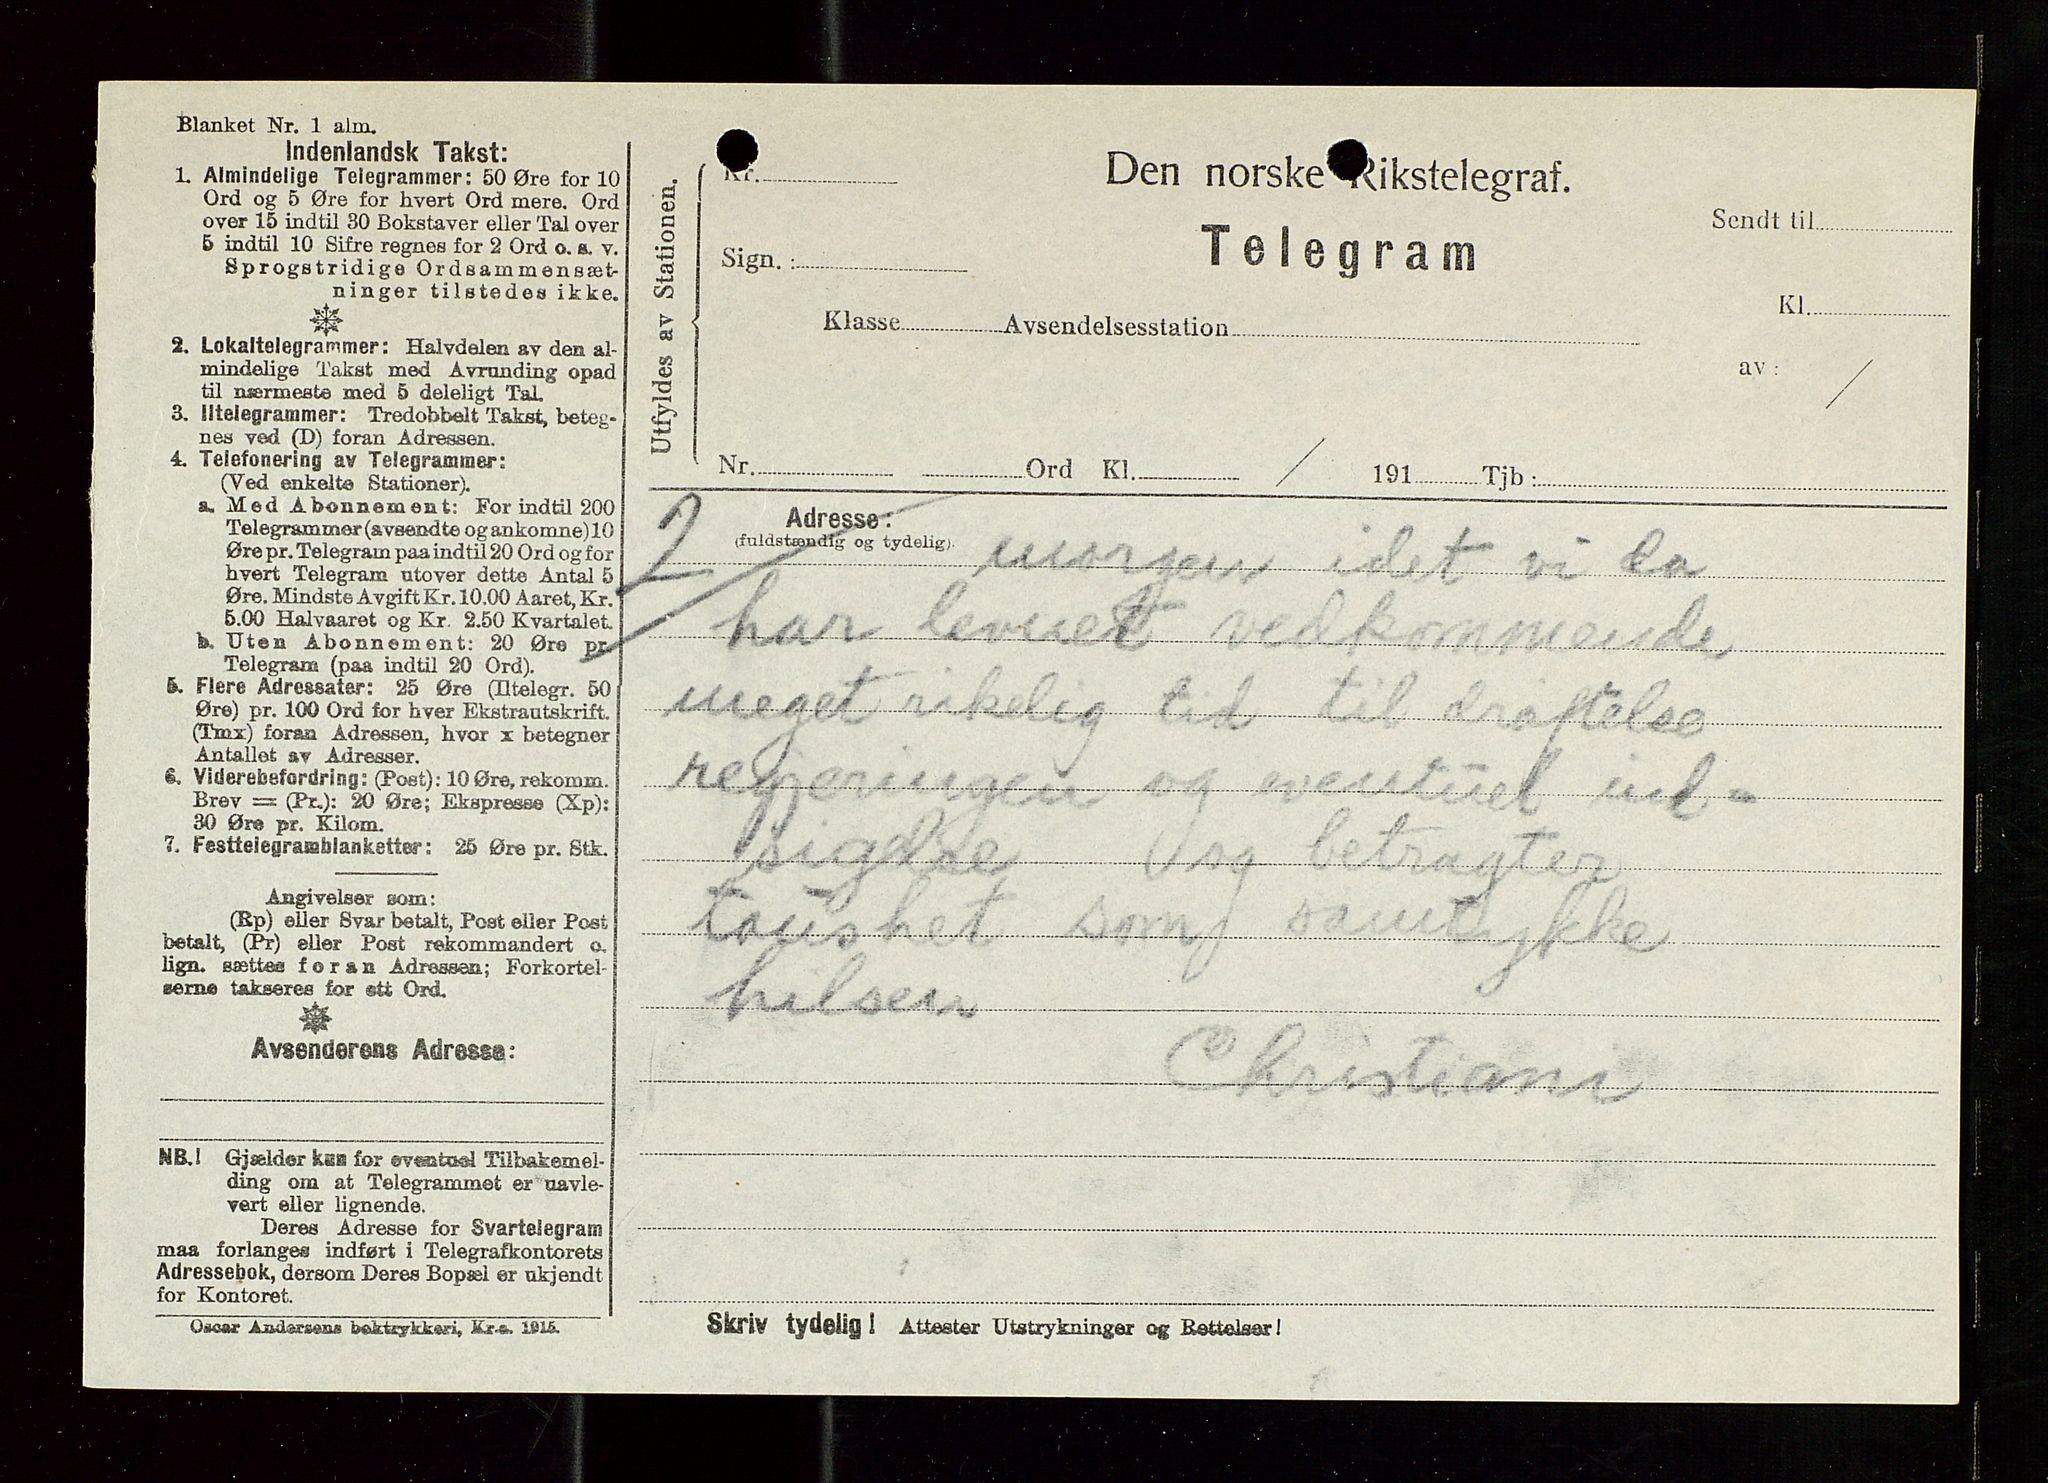 Blanket Nr. 1 alm.
Indenlandsk Takst:
1. Almindelige Telegrammer: 50 Øre for 10
Ord og 5 Øre for hvert Ord mere. Ord
over 15 indtil 30 Bokstaver eller Tal over
5 indtil 10 Sifre regnes for 2 Ord o. s. v.
Sprogstridige Ordsammensæt-
ninger tilstedes ikke.
2. Lokaltelegrammer: Halvdelen av den al-
mindelige Takst med Avrunding opad
til nærmeste med 5 deleligt Tal.
3. Iltelegrammer: Tredobbelt Takst, beteg-
nes ved (D) foran Adressen.
4. Telefonering av Telegrammer:
(Ved enkelte Stationer).
a. Med Abonnement: For indtil 200
Telegrammer (avsendte og ankomne) 10
Øre pr. Telegram paa indtil 20 Ord og for
hvert Telegram utover dette Antal 5
Øre. Mindste Avgift Kr. 10.00 Aaret, Kr.
5.00 Halvaaret og Kr. 2.50 Kvartalet.
b. Uten Abonnement: 20 Øre pr.
Telegram (paa indtil 20 Ord).
5. Flere Adressater: 25 Øre (Iltelegr. 50
Øre) pr. 100 Ord for hver Ekstrautskrift.
(Tmx) foran Adressen, hvor x betegner
Antallet av Adresser.
6. Viderebefordring: (Post): 10 Øre, rekomm.
Brev = (Pr.): 20 Øre; Ekspresse (Xp):
30 Øre pr. Kilom.
7. Festtelegramblanketter: 25 Øre pr. Stk.
Angivelser som:
(Rp) eller Svar betalt, Post eller Post
betalt, (Pr) eller Post rekommandert o.
lign. sættes foran Adressen; Forkortel-
serne takseres for ett Ord.
Avsenderens Adresse:
NB.! Gjælder kun for eventuel Tilbakemel-
ding om at Telegrammet er uavle-
vert eller lignende.
Deres Adresse for Svartelegram
maa forlanges indført i Telegrafkontorets
Adressebok, dersom Deres Bopæl er ukjendt
for Kontoret.
Oscar Andersens boktrykkeri, Kr.a. 1915.
Utfyldes av Stationen.
Kr.
Sign.:
Den norske Rikstelegraf.
Telegram
Sendt til
Kl.
Klasse Avsendelsesstation
av: /
Nr. Ord Kl. / 191 Tjb:
2
Adresse:
(fuldstændig og tydelig).
morgen idet vi da
har levnet vedkommende
meget rikelig tid til drøftelse
regjeringen og eventuel ind-
sigelse og betragter
taushet som samtykke
hilsen
Christians
Skriv tydelig! Attester Utstrykninger og Rettelser!